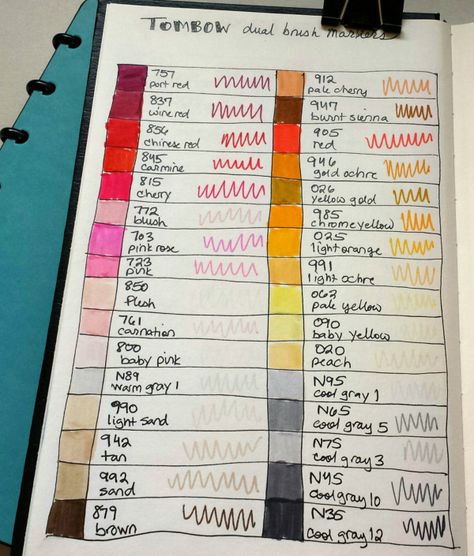 TOMBOW dual brush markers
757
port red
837
wine red
856
chinese red
845
carmine
815
cherry
772
blush
703
pink rose
723
pink
850
flesh
761
carnation
800
baby pink
N89
warm gray 1
990
light sand
942
tan
992
sand
879
brown
912
pale cherry
947
burnt sienna
905
red
946
gold ochre
026
yellow gold
985
chrome yellow
025
light orange
991
light ochre
062
pale yellow
090
baby yellow
020
peach
N95
cool gray 1
N65
cool gray 5
N75
cool gray 3
N45
cool gray 10
N35
cool gray 12